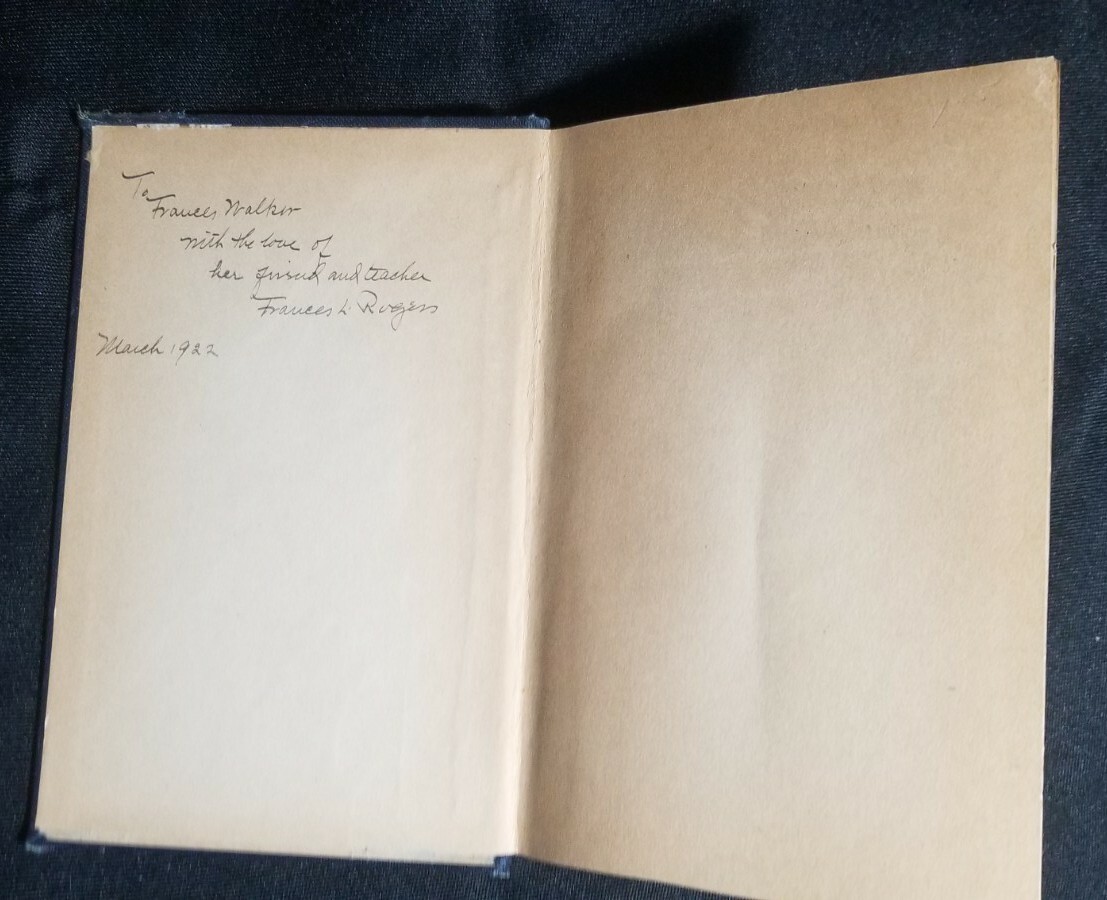 To
Frances Walker
with the love of
her friend and teacher
Frances L. Rogers
March 1922